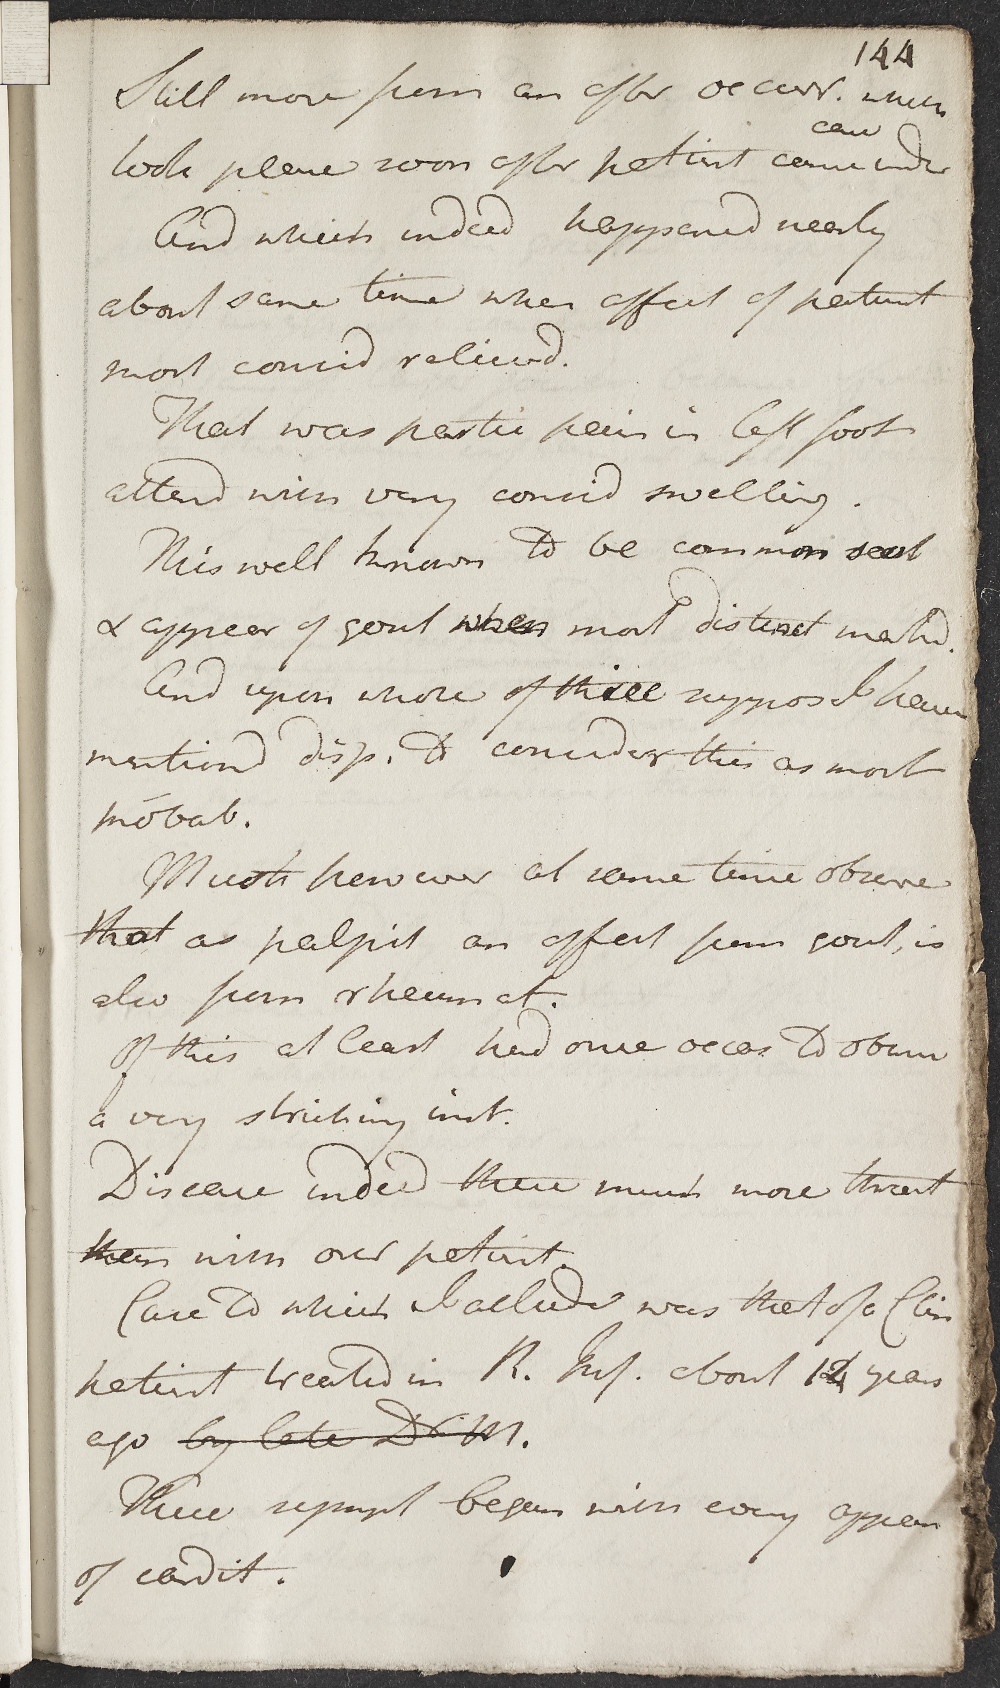 144
Still more from an after occurr. which
care
took place soon after patient came under
And which indeed happened nearly
about same time when affect of patient
most consid relieved.
That was partic pain in left foot
attend with very consid swelling.
This well known to be common seat
& appear of gout when most distinct markd.
And upon whole of these suppos I have
mentiond disp. to consider this as most
probab.
Must however at same time observe
that as palpit an affect from gout, is
also from rheumat.
Of this at least had once occas to observe
a very striking inst.
Disease indeed there much more threat
than with our patient.
Case to which I allude was that of a Clin
patient treated in R. Inf. about 14 years
ago by late Dr M.
There sympt began with every appear
of cardit.